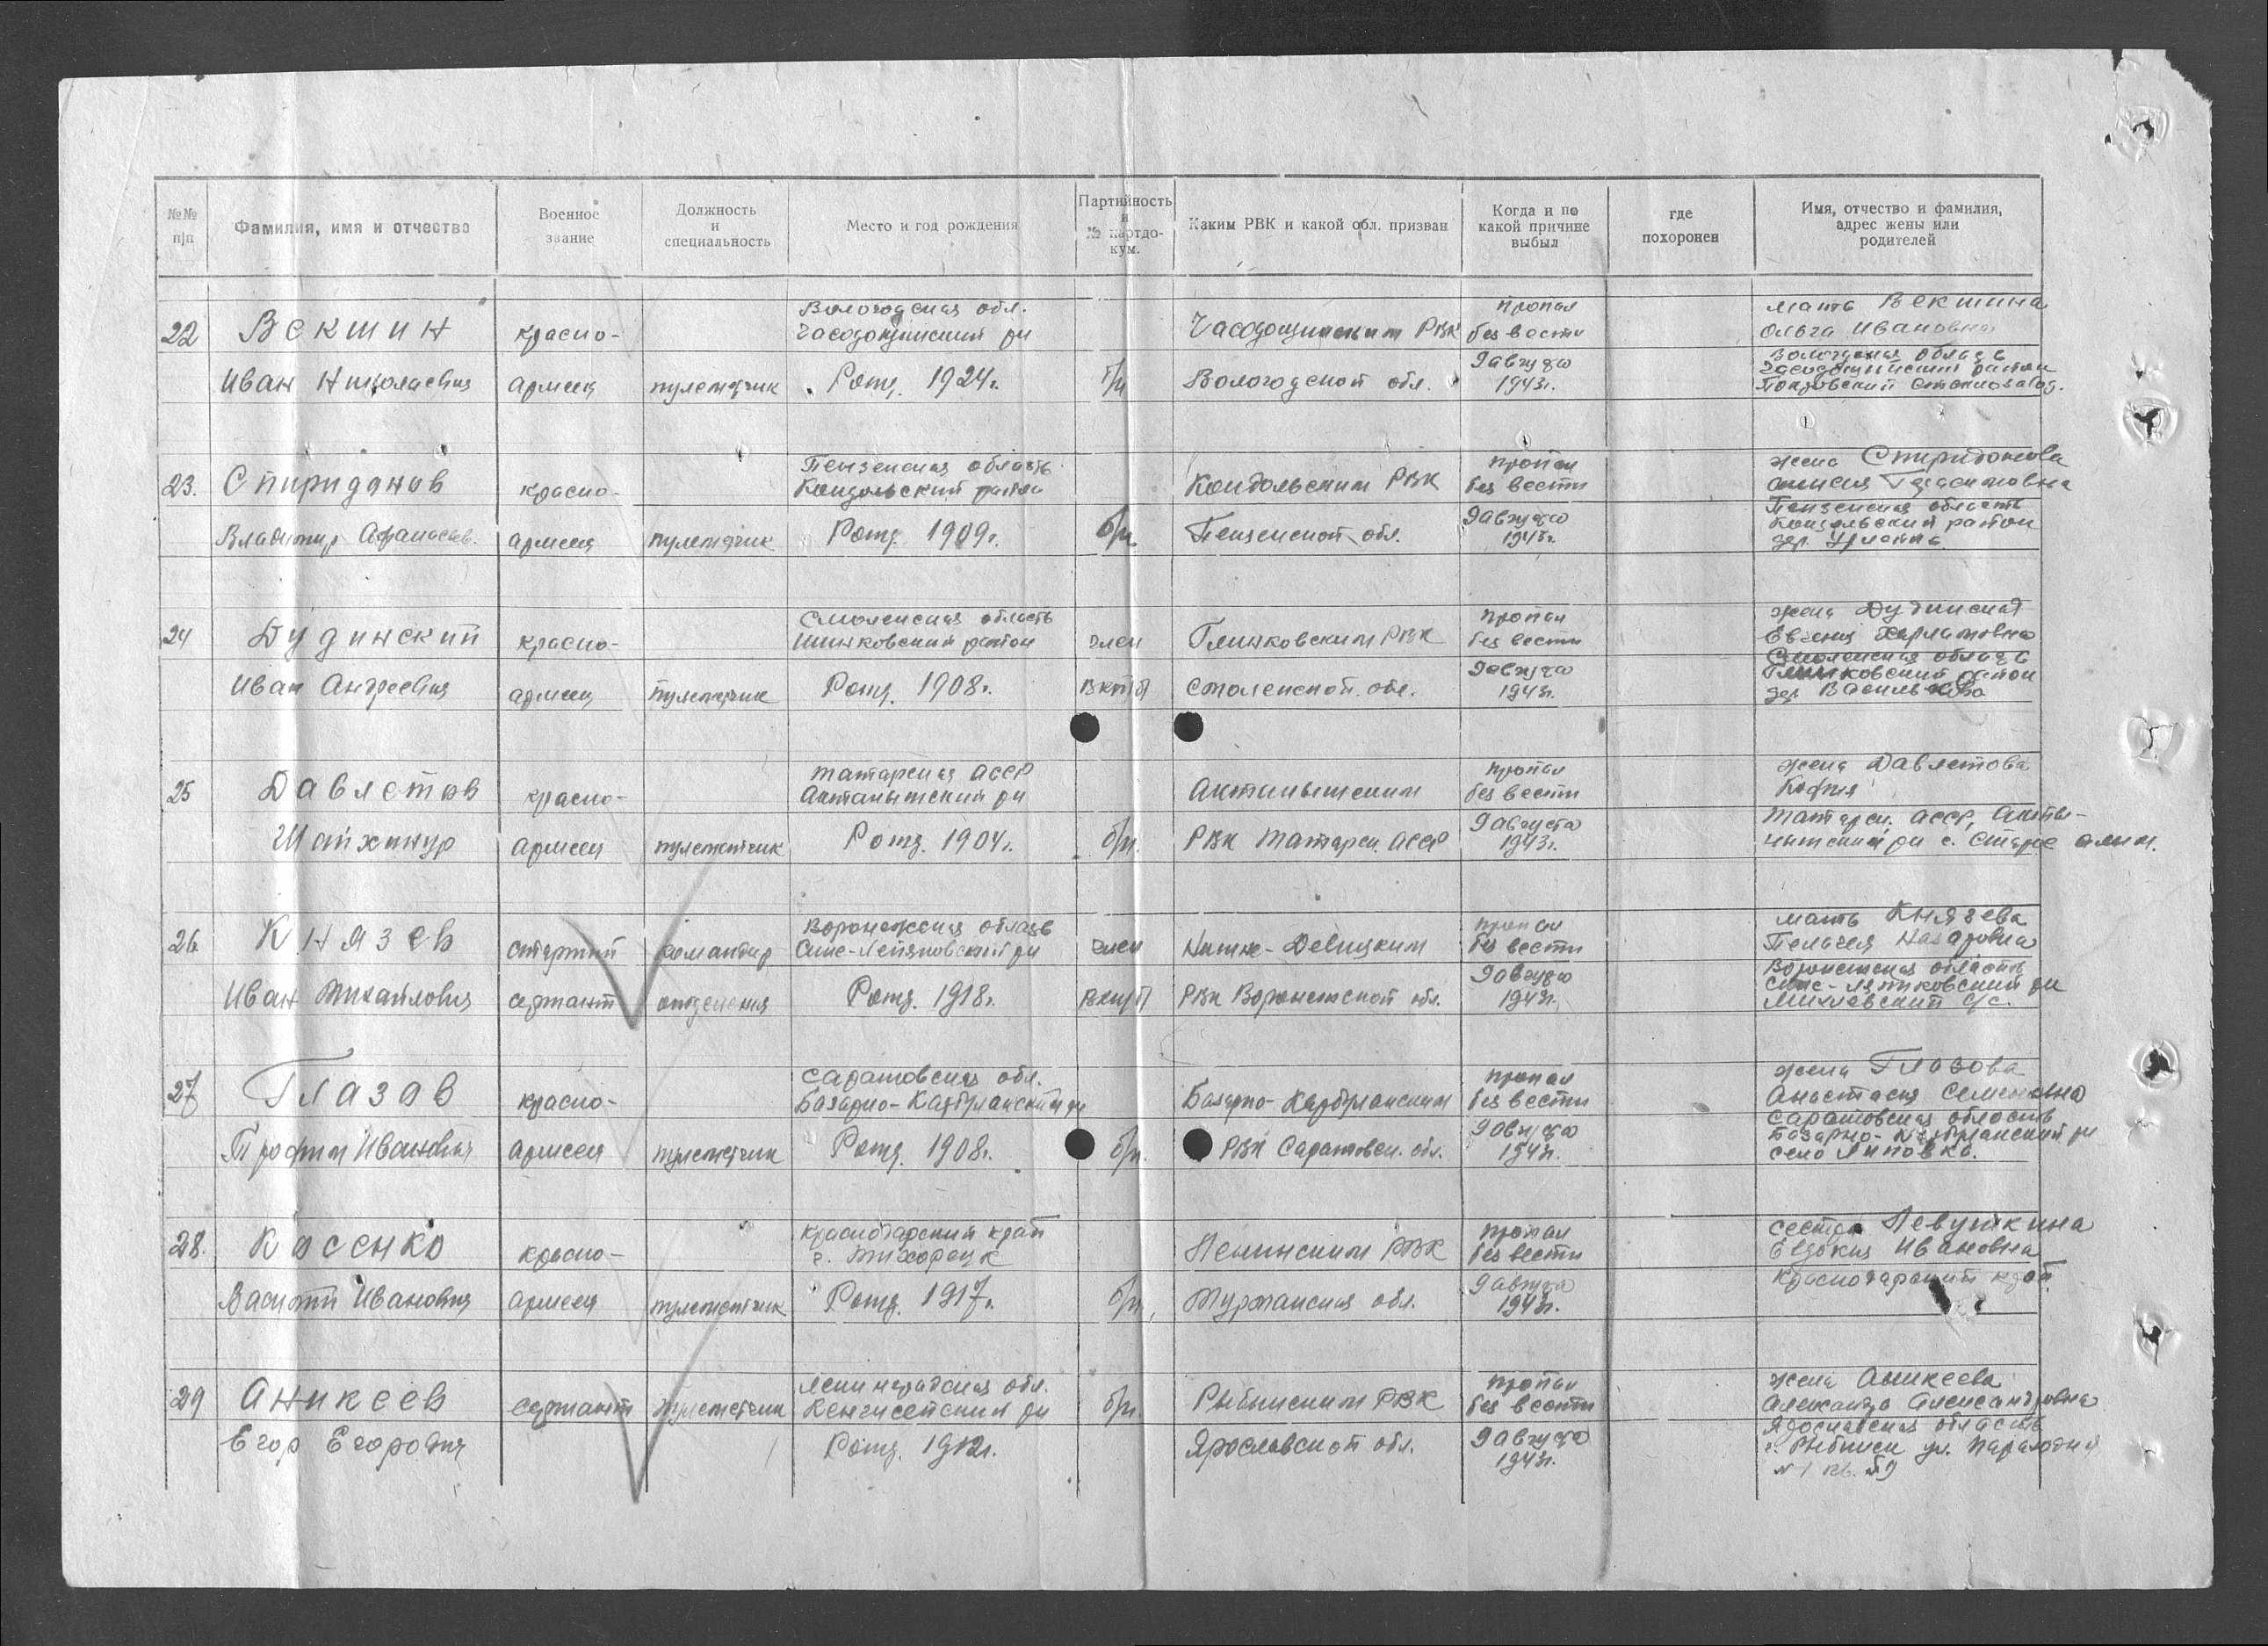 №№ п/п
Фамилия, имя и отчество
Военное звание
Должность и специальность
Место и год рождения
Партийность и № партдокум.
Каким РВК и какой обл. призван
Когда и по какой причине выбыл
где похоронен
Имя, отчество и фамилия, адрес жены или родителей
22
Векшин
Иван Николаевич
красно-
армеец
пулеметчик
Вологодская обл.
рн
Рожд. 1924г.
б/п
РВК
Вологодской обл.
пропал
без вести
9 августа
1943г.
мать Векшина
Ольга Ивановна
Вологодская область
район
Покровский стеклозавод.
23.
Спиридонов
Владимир Афанасьев.
красно-
армеец
пулеметчик
Пензенская область
Кондольский район
Рожд. 1909г.
б/п
Кондольским РВК
Пензенской обл.
пропал
без вести
9 августа
1943г.
жена Спиридонова
Герасимовна
Пензенская область
Кондольский район
дер.
24
Дудинский
Иван Андреевич
красно-
армеец
пулеметчик
Смоленская область
район
Рожд. 1908г.
член
ВКПб
Глинковским РВК
Смоленской обл.
пропал
без вести
9 августа
1943г.
жена Дудинская
Евгения Харламовна
Смоленская область
Глинковский район
дер. Васильево
25
Давлетов
Шайхинур
красно-
армеец
пулеметчик
Татарская АССР
Актанышский рн
Рожд. 1904г.
б/п.
Актанышским
РВК Татарск. АССР
пропал
без вести
9 августа
1943г.
жена Давлетова
Татарск. АССР, Акта-
нышский рн с. Старое
26
Князев
Иван Михайлович
старший
сержант
командир
отделения
Воронежская область
рн
Рожд. 1918г.
член
ВКП/б
Нижне-Девицким
РВК Воронежской обл.
пропал
без вести
9 августа
1943г.
мать Князева
Пелагея Назаровна
Воронежская область
рн
с/с.
27
Глазов
Трофим Иванович
красно-
армеец
пулеметчик
Саратовская обл.
Базарно-Карбулакский рн
Рожд. 1908г.
б/п.
Базарно-Карбулакским
РВК Саратовск. обл.
пропал
без вести
9 августа
1943г.
жена Глазова
Анастасия Семеновна
Саратовская область
Базарно-Карбулакский рн
село Липовка.
28.
Косенко
Василий Иванович
красно-
армеец
пулеметчик
Краснодарский край
г. Тихорецк
Рожд. 1917г.
б/п.
Ленинским РВК
Мурманская обл.
пропал
без вести
9 августа
1943г.
сестра Левушкина
Евдокия Ивановна
Краснодарский край.
29
Аникеев
Егор Егорович
сержант
пулеметчик
Ленинградская обл.
Кенгисепским рн
Рожд. 1912г.
б/п.
Рыбинским РВК
Ярославской обл.
пропал
без вести
9 августа
1943г.
жена Аникеева
Александра Александровна
Ярославская область
г. Рыбинск ул.
№ 1 кв.